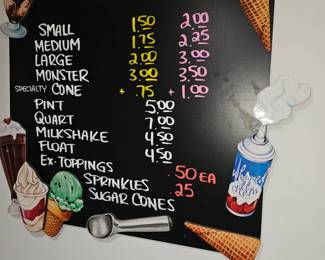 SMALL 1.50 2.00
MEDIUM 1.75 2.25
LARGE 2.00 3.00
MONSTER 3.00 3.50
SPECIALTY CONE + .75 + 1.00
PINT 5.00
QUART 7.00
MILKSHAKE 4.50
FLOAT 4.50
EX-TOPPINGS
SPRINKLES .50 EA
SUGAR CONES .25
Whipped
cream